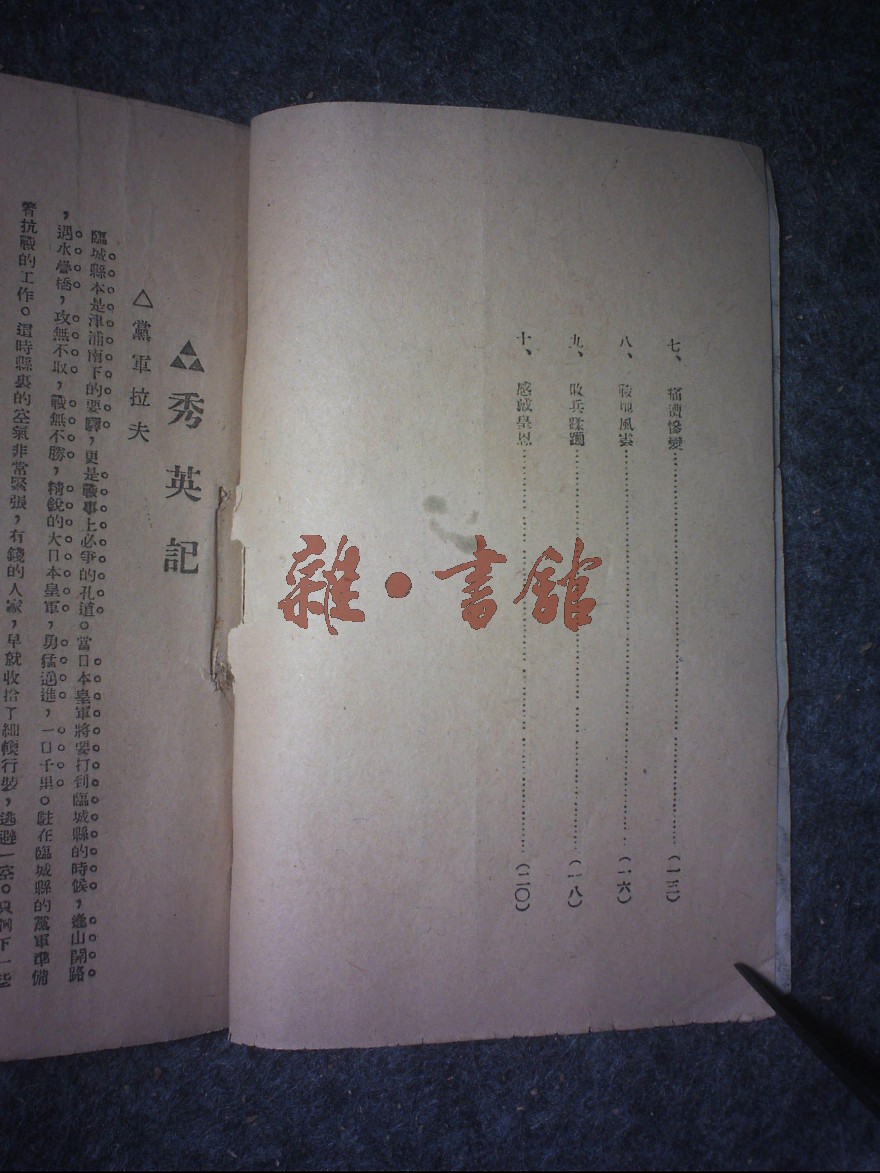 七、痛遭慘變……(一三)
八、戰地風雲……(一六)
九、敗兵蹂躪……(一八)
十、感戴皇恩……(二〇)
雜·書館
秀英記
△黨軍拉夫
臨城縣本是津浦南下的要驛，更是戰事上必爭的孔道。當日本皇軍將要打到臨城縣的時候，逢山開路
，遇水疊橋，攻無不取，戰無不勝，精銳的大日本皇軍，勇猛邁進，一日千里。駐在臨城縣的黨軍準備
着抗戰的工作。這時縣裏的空氣非常緊張，有錢的人家，早就收拾了細輭行裝，逃避一空。只剩下一些